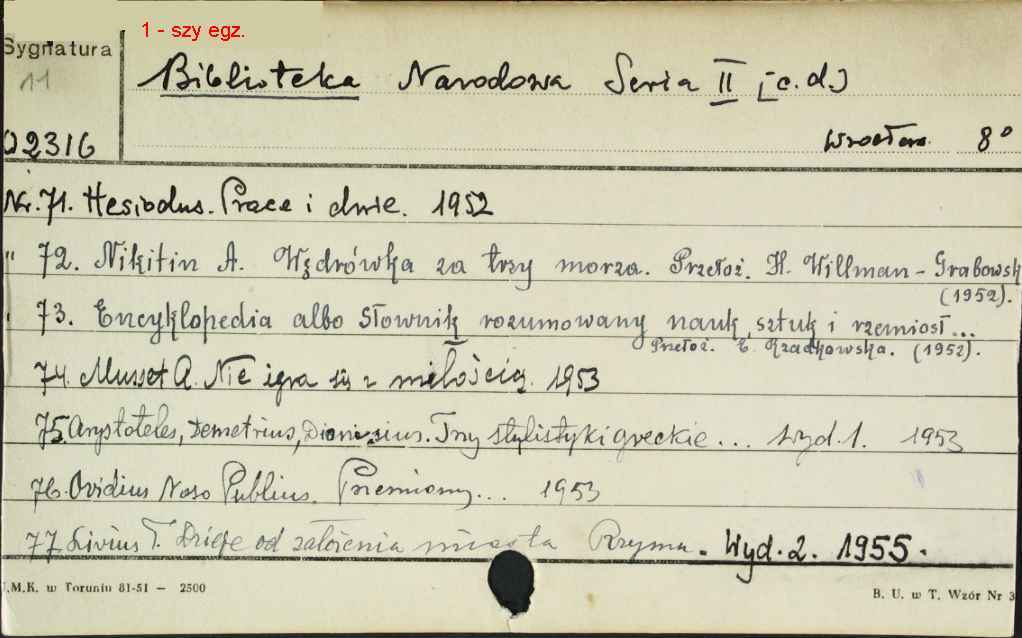 1 - szy egz.
Sygnatura
11
Biblioteka Narodowa Seria II [c.d.]
02316
Wrocław. 8°
Nr. 71. Hesiodus. Prace i dnie. 1952
" 72. Nikitin A. Wędrówka za trzy morza. Przełoż. H. Willman-Grabowsk
(1952).
" 73. Encyklopedia albo Słownik rozumowany nauk, sztuk i rzemiosł...
Przełoż. E. Rzadkowska. (1952).
74. Musset A. Nie igra się z miłością. 1953
75. Arystoteles, Demetrius, Dionisius. Trzy stylistyki greckie... Wyd. 1. 1953
76. Ovidius Naso Publius. Przemiany... 1953
77. Livius T. Dzieje od założenia miasta Rzymu. Wyd. 2. 1955.
U.M.K. w Toruniu 81-51 — 2500
B. U. w T. Wzór Nr 3